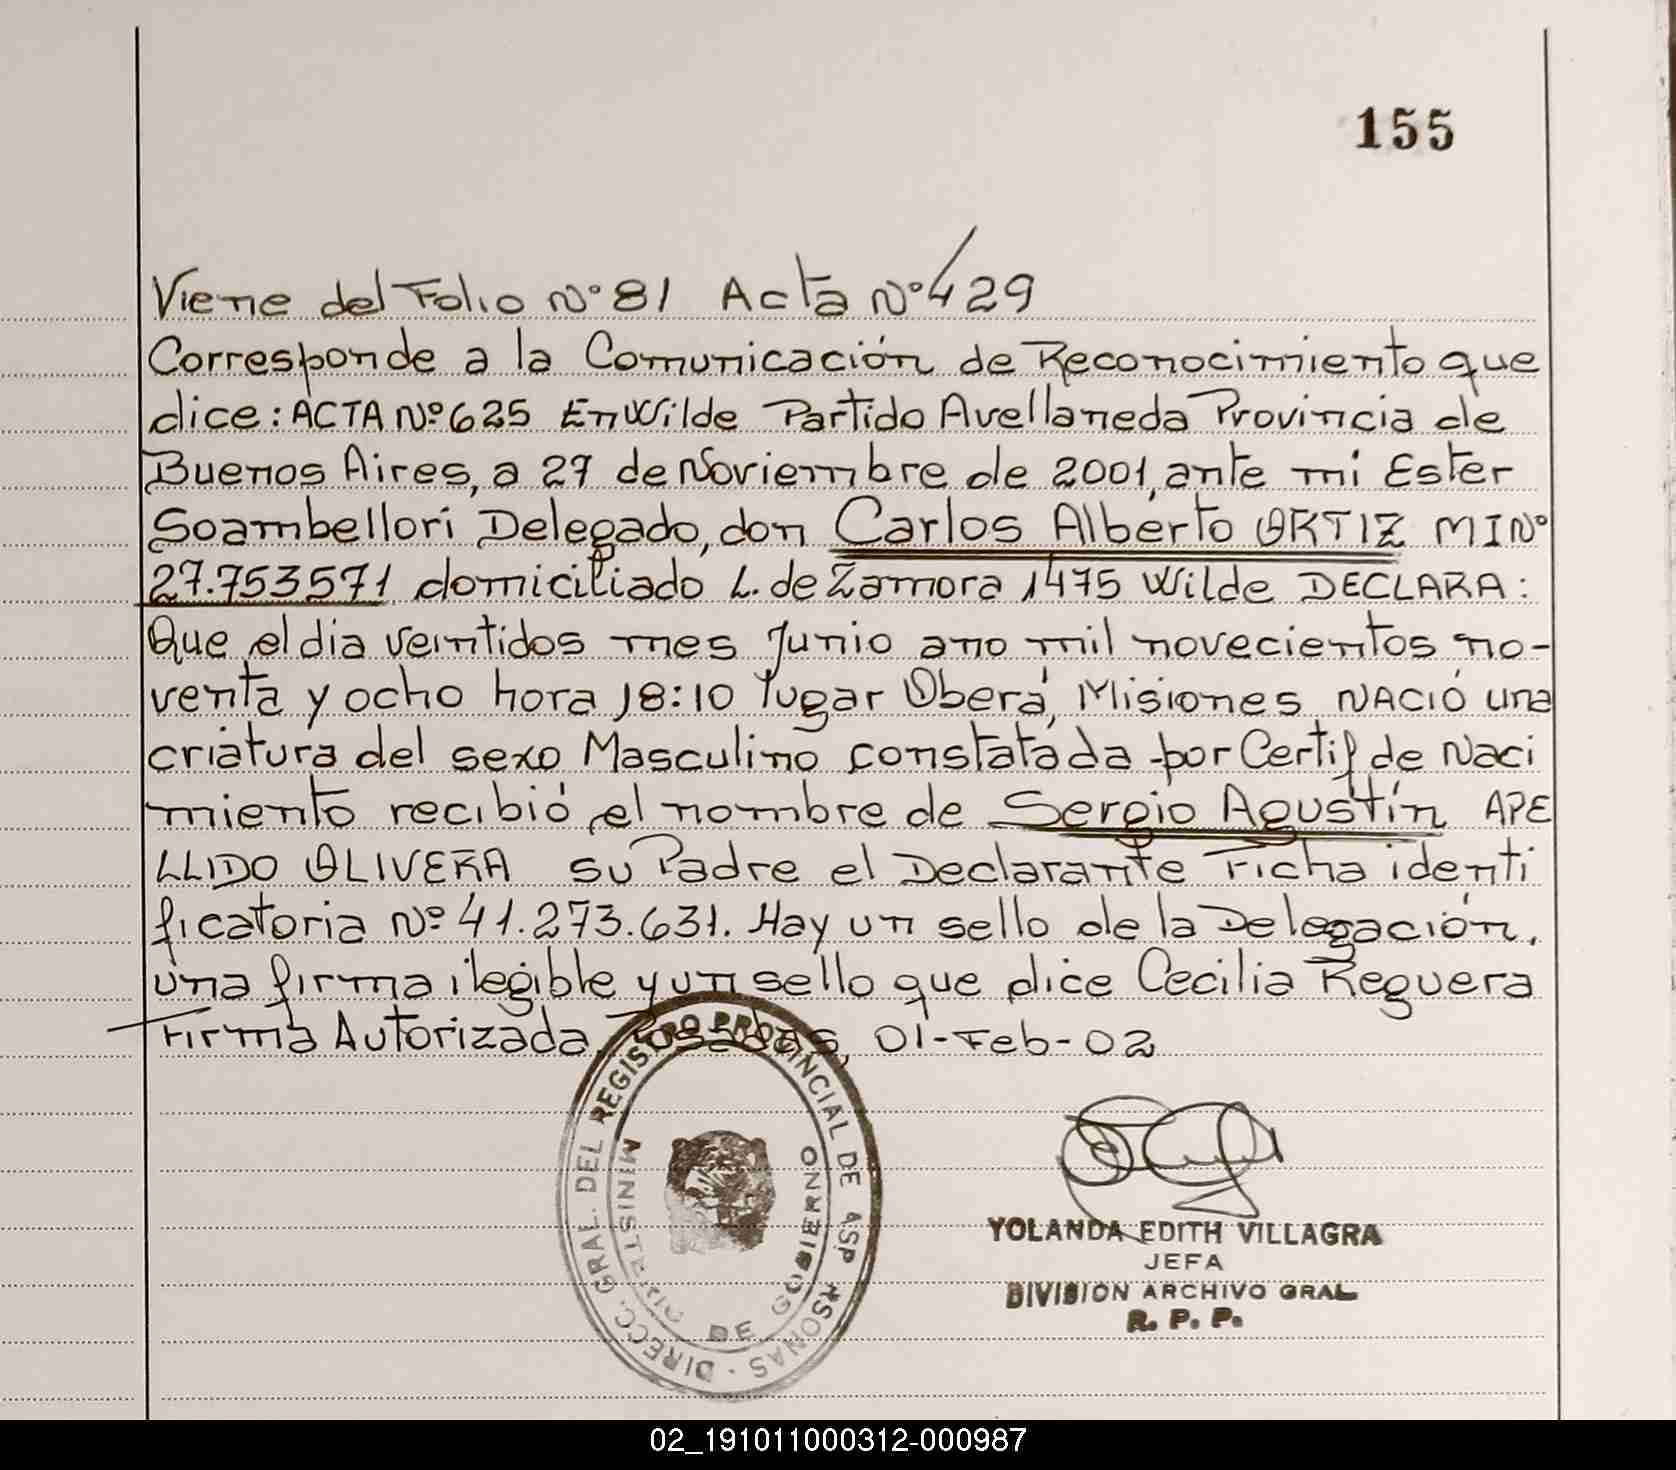 155
Viene del Folio Nº 81 Acta Nº 429
Corresponde a la Comunicación de Reconocimiento que
dice: ACTA Nº 625 En Wilde Partido Avellaneda Provincia de
Buenos Aires, a 27 de Noviembre de 2001, ante mi Ester
Soambellori Delegado, don Carlos Alberto ORTIZ MI Nº
27.753571 domiciliado L. de Zamora 1475 Wilde DECLARA:
Que el dia veintidos mes Junio ano mil novecientos no-
venta y ocho hora 18:10 lugar Oberá, Misiones NACIÓ una
criatura del sexo Masculino constatada por Certif de Naci
miento recibió el nombre de Sergio Agustín APE
LLIDO OLIVERA su Padre el Declarante Ficha identi
ficatoria Nº 41.273.631. Hay un sello de la Delegación.
una firma ilegible y un sello que dice Cecilia Reguera
Firma Autorizada. Posadas, 01-Feb-02
DIRECC. GRAL. DEL REGISTRO PROVINCIAL DE RSONAS
MINISTERIO DE GOBIERNO
YOLANDA EDITH VILLAGRA
JEFA
DIVISION ARCHIVO GRAL
R. P. P.
02_191011000312-000987